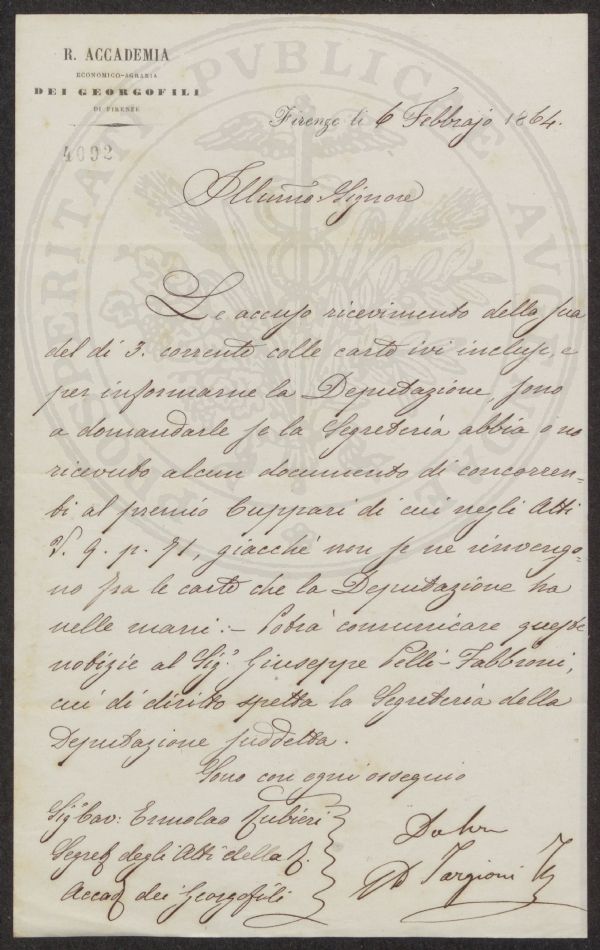 R. ACCADEMIA
ECONOMICO-AGRARIA
DEI GEORGOFILI
DI FIRENZE
4092
Firenze li 6 Febbrajo 1864.
Illumo Signore
Le accuso ricevimento della sua
del dì 3. corrente colle carte ivi incluse, e
per informarne la Deputazione, sono
a domandarle se la Segreteria abbia o no
ricevuto alcun documento di concorren=
ti al premio Cuppari di cui negli Atti
V. 9. p. 71, giacché non se ne rinvengo=
no fra le carte che la Deputazione ha
nelle mani: – Potrà comunicare queste
notizie al Sig. Giuseppe Pelli-Fabbroni,
cui di diritto spetta la Segreteria della
Deputazione suddetta.
Sono con ogni ossequio
Sig. Cav: Ermolao Rubieri
Segret degli Atti della R.
Accad dei Georgofili
Targioni
PROSPERITATI PVBLICAE AVGENDAE